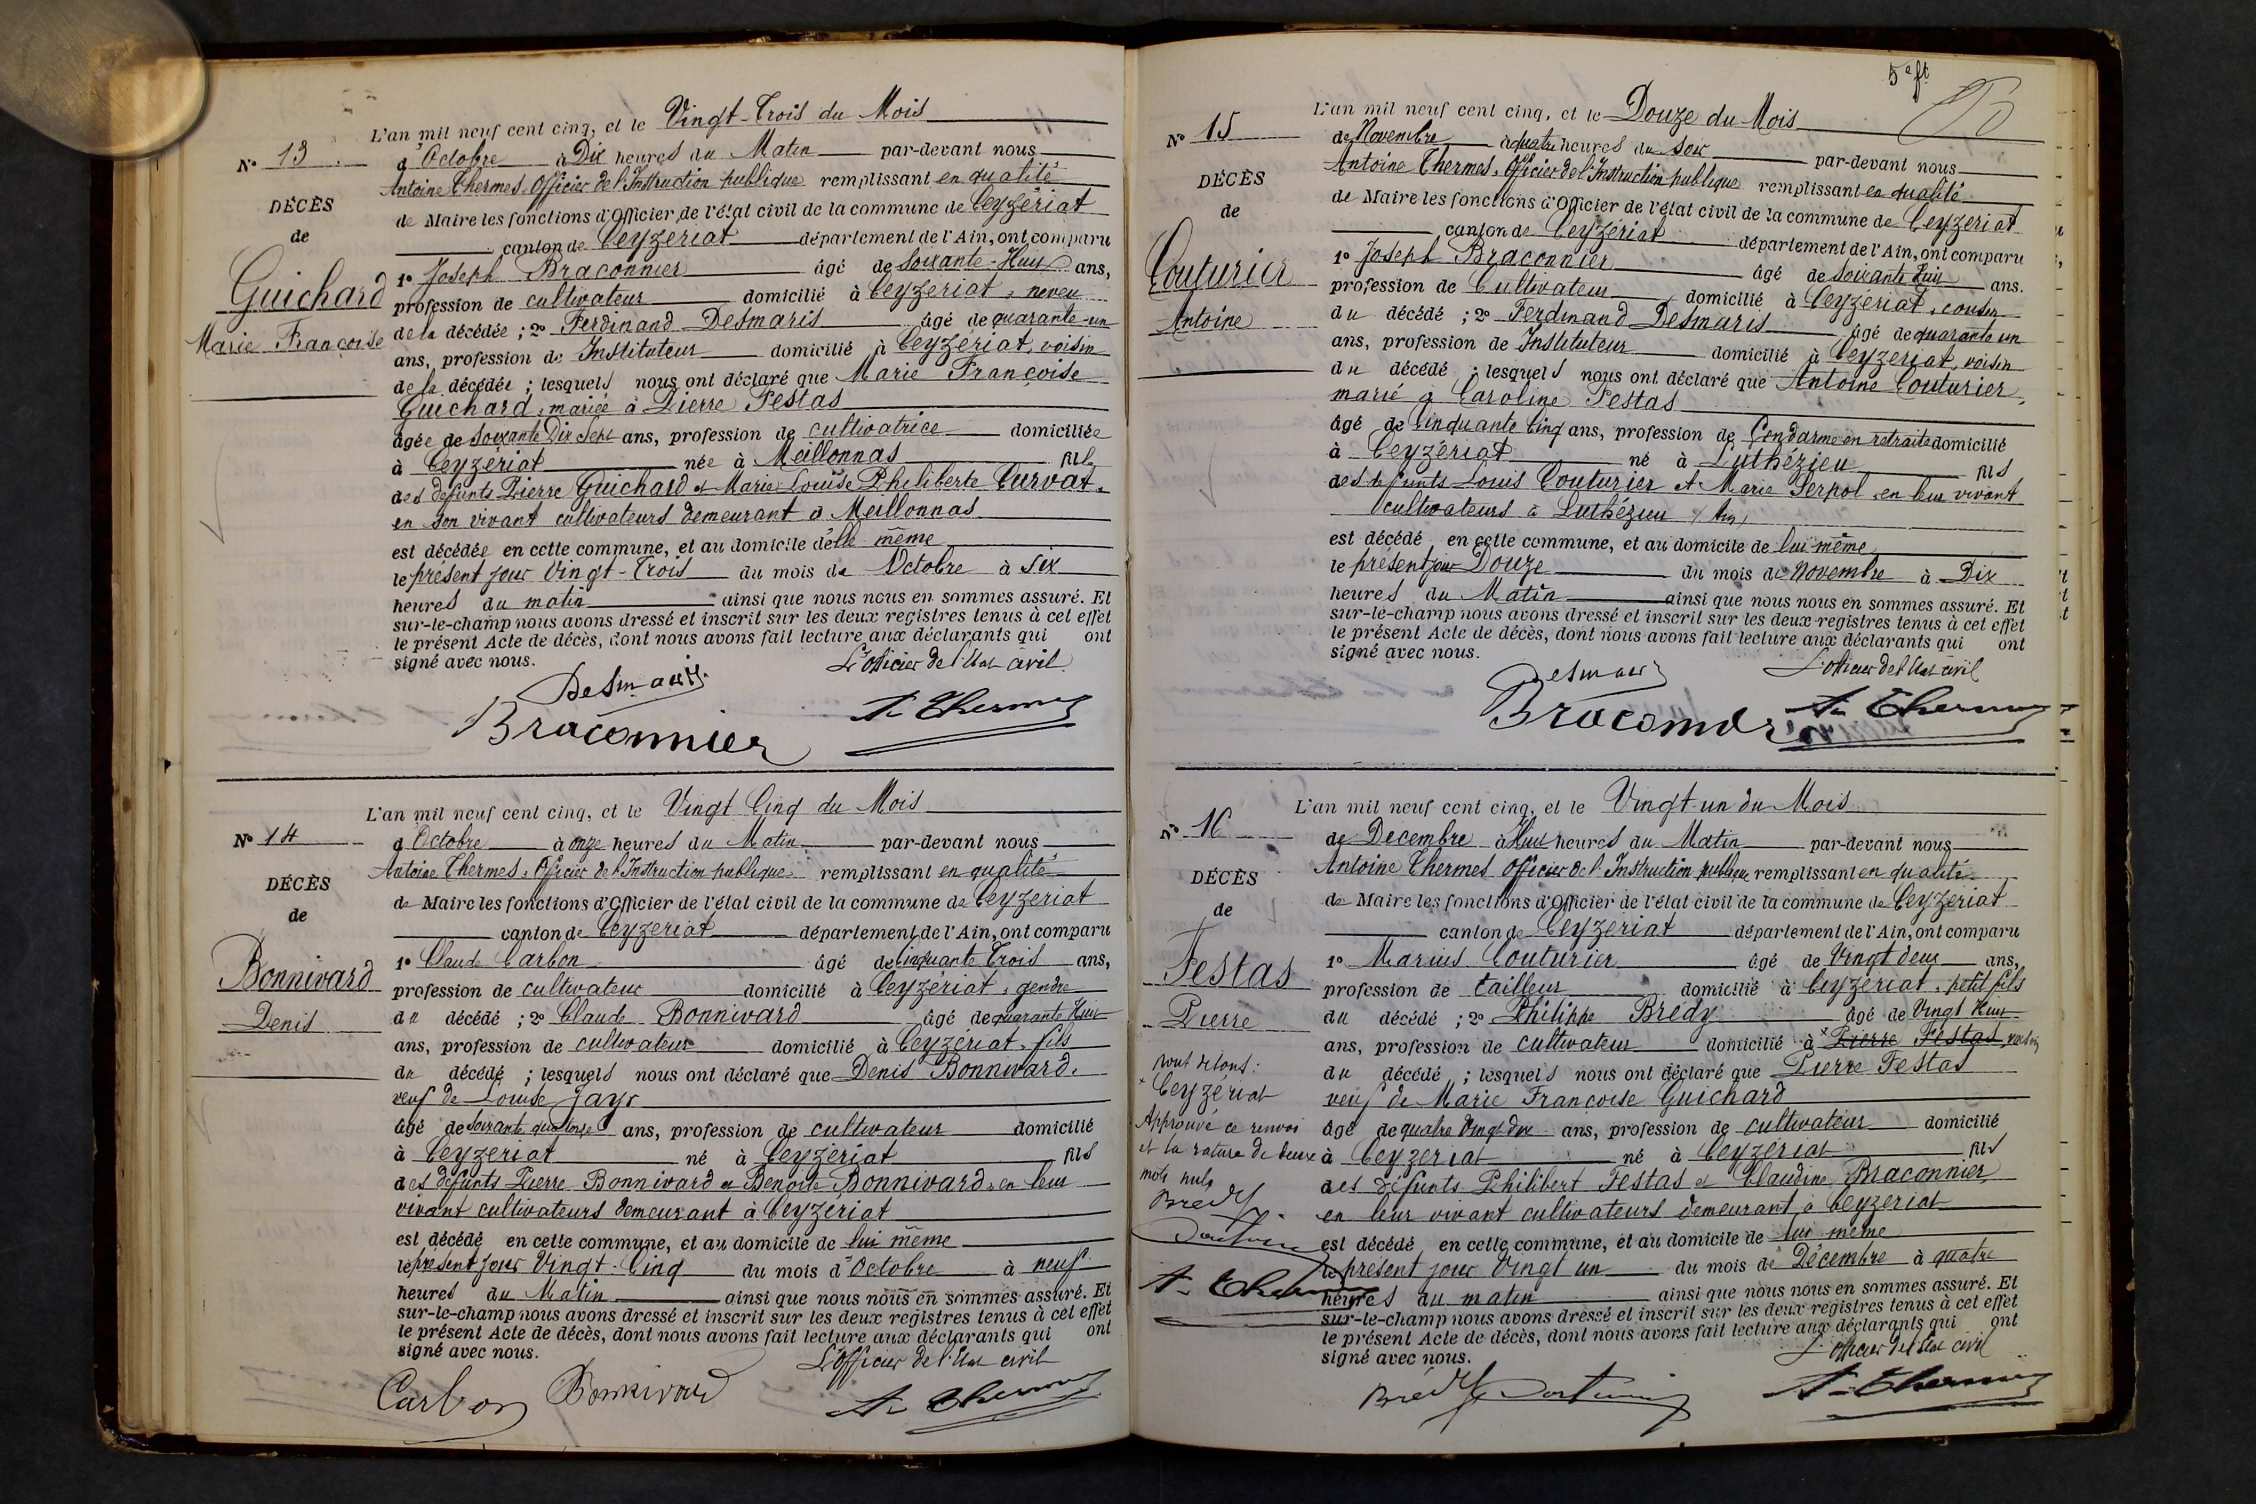 N° 13
DÉCÈS
de
Guichard
Marie Françoise
L'an mil neuf cent cinq, et le Vingt-Trois du Mois
d'Octobre à Dix heures du Matin par-devant nous
Antoine Thermes, Officier de l'Instruction publique remplissant en qualité
de Maire les fonctions d'Officier de l'état civil de la commune de Ceyzériat
canton de Ceyzériat département de l'Ain, ont comparu
1° Joseph Braconnier âgé de Soixante-Huit ans,
profession de cultivateur domicilié à Ceyzériat, neveu
de la décédée ; 2° Ferdinand Desmaris âgé de quarante-un
ans, profession de Instituteur domicilié à Ceyzériat, voisin
de la décédée ; lesquels nous ont déclaré que Marie Françoise
Guichard, mariée à Pierre Festas
âgée de Soixante Dix Sept ans, profession de cultivatrice domiciliée
à Ceyzériat née à Meillonnas fille
des defunts Pierre Guichard et Marie Louise Philiberte Curvat,
en son vivant cultivateurs demeurant à Meillonnas
est décédée en cette commune, et au domicile d'elle même
le présent jour Vingt-Trois du mois de Octobre à Six
heures du matin ainsi que nous nous en sommes assuré. Et
sur-le-champ nous avons dressé et inscrit sur les deux registres tenus à cet effet
le présent Acte de décès, dont nous avons fait lecture aux déclarants qui ont
signé avec nous.
L'officier de l'Etat civil
Desmaris
Braconnier
A. Thermes
N° 14
DÉCÈS
de
Bonnivard
Denis
L'an mil neuf cent cinq, et le Vingt Cinq du Mois
d'Octobre à onze heures du Matin par-devant nous
Antoine Thermes, Officier de l'Instruction publique, remplissant en qualité
de Maire les fonctions d'Officier de l'état civil de la commune de Ceyzériat
canton de Ceyzériat département de l'Ain, ont comparu
1° Claude Carbon âgé de Cinquante Trois ans,
profession de cultivateur domicilié à Ceyzériat, gendre
du décédé ; 2° Claude Bonnivard âgé de quarante Huit
ans, profession de cultivateur domicilié à Ceyzériat, fils
du décédé ; lesquels nous ont déclaré que Denis Bonnivard,
veuf de Louise Jayr
âgé de Soixante quatorze ans, profession de cultivateur domicilié
à Ceyzériat né à Ceyzériat fils
des defunts Pierre Bonnivard et Benoite Bonnivard, en leur
vivant cultivateurs demeurant à Ceyzériat
est décédé en cette commune, et au domicile de lui même
le présent jour Vingt-Cinq du mois d'Octobre à neuf
heures du Matin ainsi que nous nous en sommes assuré. Et
sur-le-champ nous avons dressé et inscrit sur les deux registres tenus à cet effet
le présent Acte de décès, dont nous avons fait lecture aux déclarants qui ont
signé avec nous.
L'Officier de l'Etat civil
Carbon Bonnivard
A. Thermes
5e ft
N° 15
DÉCÈS
de
Couturier
Antoine
L'an mil neuf cent cinq, et le Douze du Mois
de Novembre à quatre heures du Soir par-devant nous
Antoine Thermes, Officier de l'Instruction publique remplissant en qualité
de Maire les fonctions d'Officier de l'état civil de la commune de Ceyzériat
canton de Ceyzériat département de l'Ain, ont comparu
1° Joseph Braconnier âgé de Soixante Huit ans.
profession de Cultivateur domicilié à Ceyzériat, cousin
du décédé ; 2° Ferdinand Desmaris âgé de quarante un
ans, profession de Instituteur domicilié à Ceyzériat, voisin
du décédé ; lesquels nous ont déclaré que Antoine Couturier,
marié à Caroline Festas
âgé de Cinquante Cinq ans, profession de Gendarme en retraite domicilié
à Ceyzériat né à Luthézieu fils
des defunts Louis Couturier et Marie Serpol, en leur vivant
cultivateurs à Luthézieu (Ain)
est décédé en cette commune, et au domicile de lui même
le présent jour Douze du mois de Novembre à Dix
heures du Matin ainsi que nous nous en sommes assuré. Et
sur-le-champ nous avons dressé et inscrit sur les deux registres tenus à cet effet
le présent Acte de décès, dont nous avons fait lecture aux déclarants qui ont
signé avec nous.
L'officier de l'Etat civil
Desmaris
Braconnier
A. Thermes
N° 16
DÉCÈS
de
Festas
Pierre
L'an mil neuf cent cinq, et le Vingt-un du Mois
de Decembre à Huit heures du Matin par-devant nous
Antoine Thermes Officier de l'Instruction publique remplissant en qualité
de Maire les fonctions d'Officier de l'état civil de la commune de Ceyzériat
canton de Ceyzériat département de l'Ain, ont comparu
1° Marius Couturier âgé de Vingt deux ans,
profession de tailleur domicilié à Ceyzériat, petit fils
du décédé ; 2° Philippe Brédy âgé de Vingt Huit
ans, profession de cultivateur domicilié à × Pierre Festas, voisin
du décédé ; lesquels nous ont déclaré que Pierre Festas
veuf de Marie Françoise Guichard
âgé de quatre Vingt deux ans, profession de cultivateur domicilié
à Ceyzériat né à Ceyzériat fils
des défunts Philibert Festas et Claudine Braconnier,
en leur vivant cultivateurs demeurant à Ceyzériat
est décédé en cette commune, et au domicile de lui même
le présent jour Vingt un du mois de Décembre à quatre
heures du matin ainsi que nous nous en sommes assuré. Et
sur-le-champ nous avons dressé et inscrit sur les deux registres tenus à cet effet
le présent Acte de décès, dont nous avons fait lecture aux déclarants qui ont
signé avec nous.
L'officier de l'Etat civil
Brédy Couturier
A. Thermes
× Ceyzériat
Approuvé ce renvoi
et la rature de deux
mots nuls
Brédy
Couturier
A. Thermes